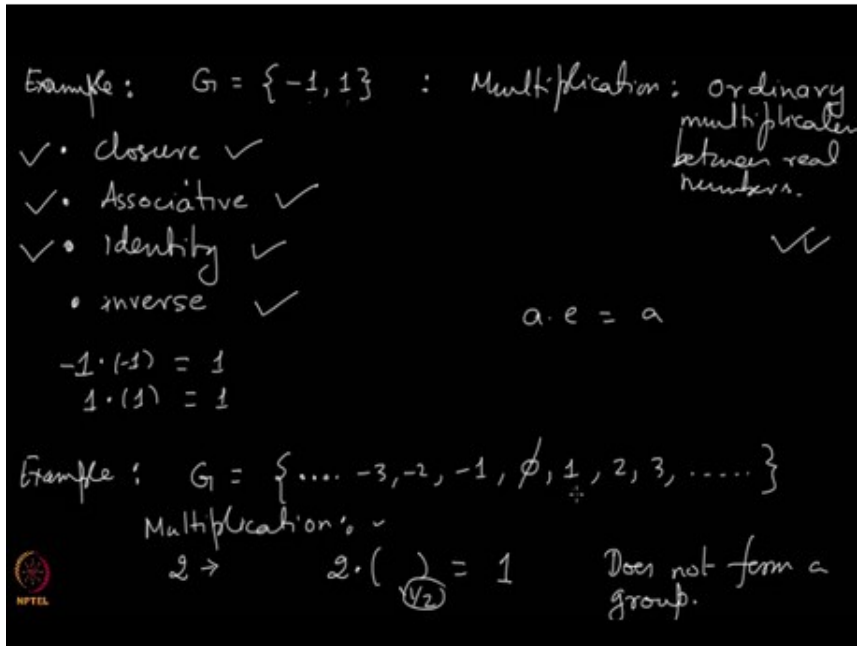 Example : G = {-1, 1} : Multiplication : Ordinary
multiplication
between real
numbers.
✓ • Closure ✓
✓ • Associative ✓
✓ • identity ✓ ✓✓
• inverse ✓
a · e = a
-1 · (-1) = 1
1 · (1) = 1
Example : G = {.... -3, -2, -1, 0̸, 1, 2, 3, .....}
Multiplication :
2 → 2 · ( ) = 1 Does not form a
1/2 group.
NPTEL